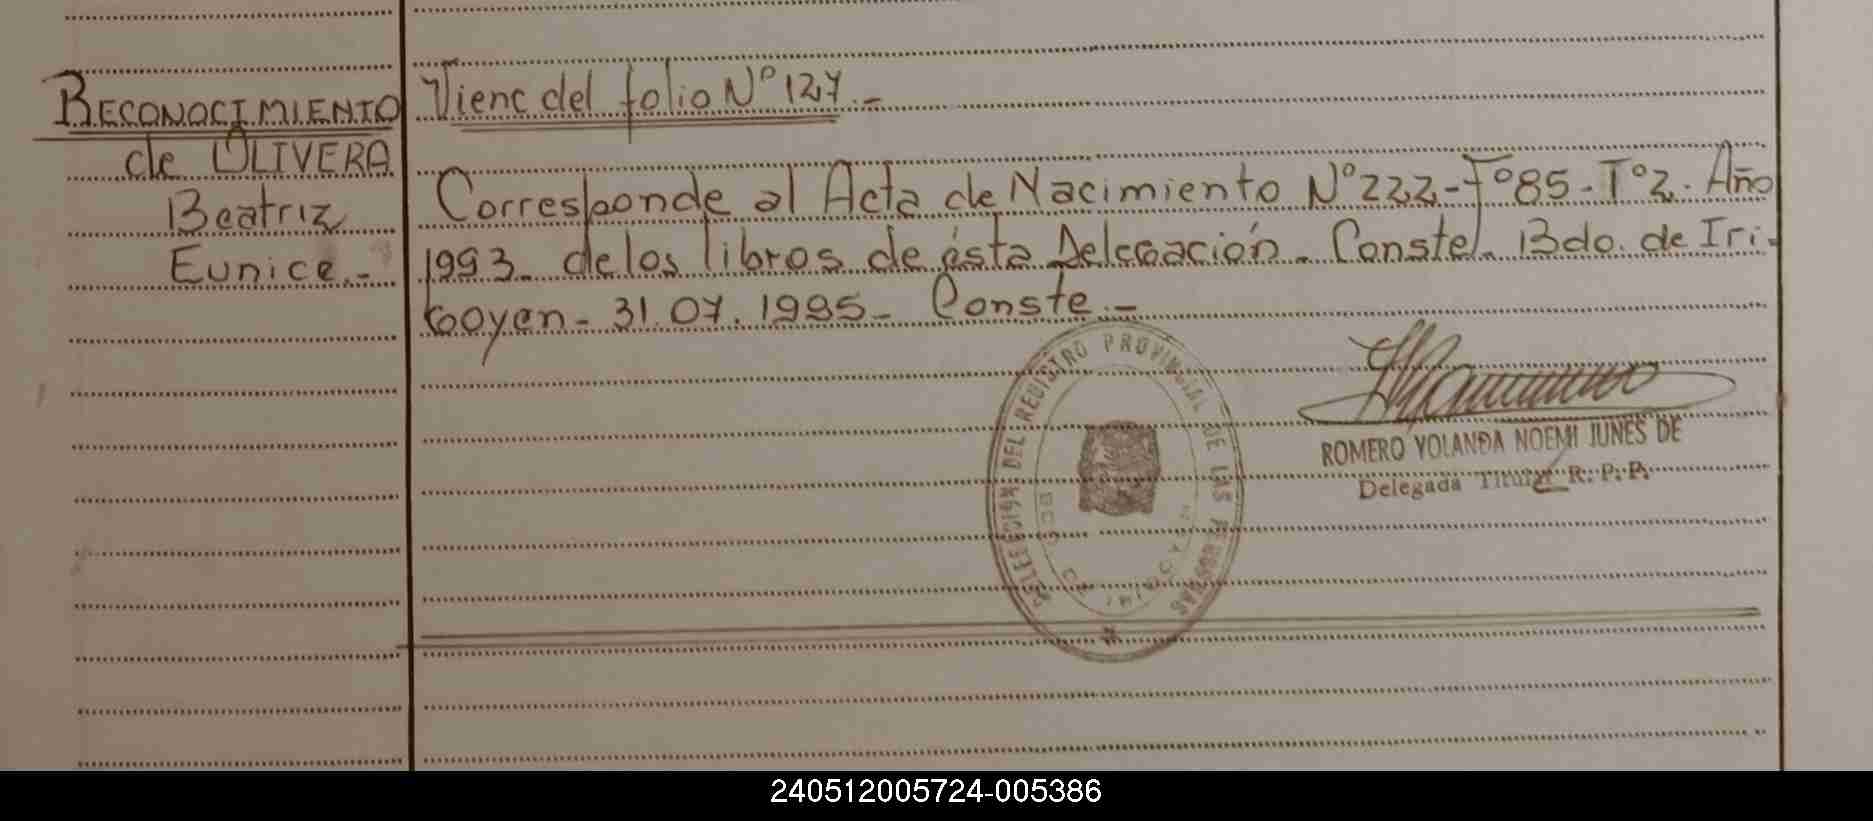 RECONOCIMIENTO
de OLIVERA
Beatriz
Eunice.-
Viene del folio Nº 127.-
Corresponde al Acta de Nacimiento Nº 222-Fº85-Tº2. Año
1993. de los libros de ésta Delegación. Conste. Bdo. de Iri-
goyen- 31.07.1995- Conste.-
DELEGACION DEL REGISTRO PROVINCIAL DE LAS PERSONAS
ROMERO YOLANDA NOEMI JUNES DE
Delegada Titular R. P. P.
240512005724-005386